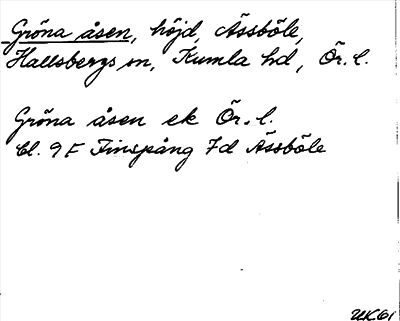 Gröna åsen, höjd, Ässböle,
Hallsbergs sn, Kumla hd, Ör. l.
Gröna åsen ek Ör. l.
Bl. 9 F Finspång 7d Ässböle
UK 61